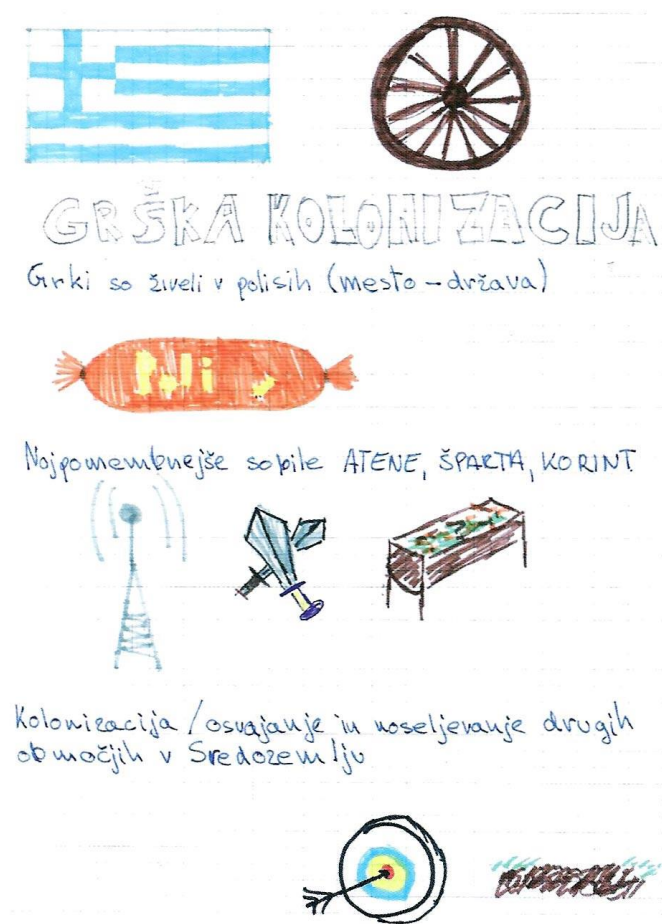 GRŠKA KOLONIZACIJA
Grki so živeli v polisih (mesto-država)
Poli
Najpomembnejše so bile ATENE, ŠPARTA, KORINT
Kolonizacija / osvajanje in naseljevanje drugih
območjih v Sredozemlju